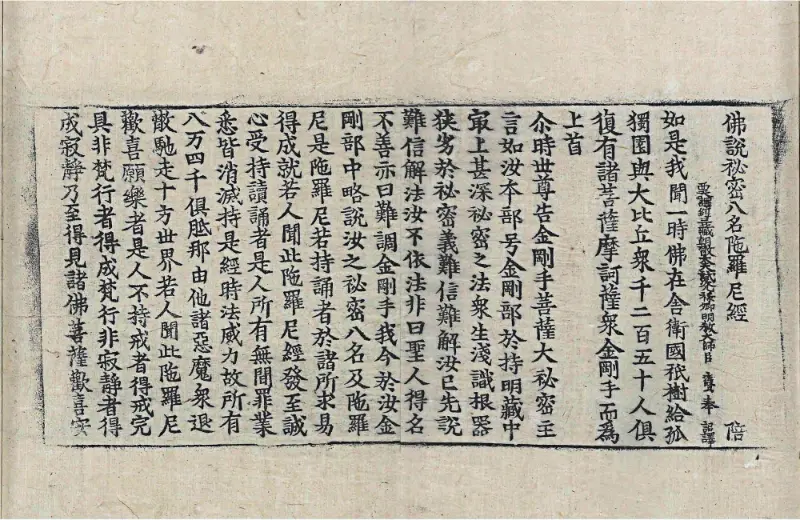 佛說祕密八名陁羅尼經 陪
西天譯經三藏朝散大夫試光祿卿明教大師臣法賢奉 詔譯
如是我聞一時佛在舍衛國祇樹給孤
獨園與大比丘衆千二百五十人俱
復有諸菩薩摩訶薩衆金剛手而爲
上首
尒時世尊告金剛手菩薩大祕密主
言如汝夲部号金剛部於持明藏中
㝡上甚深祕密之法衆生淺識根器
狹劣於祕密義難信難解汝已先說
難信解法汝不依法非曰聖人得名
不善亦曰難調金剛手我今於汝金
剛部中略說汝之祕密八名及陁羅
尼是陁羅尼若持誦者於諸所求易
得成就若人聞此陁羅尼經發至誠
心受持讀誦者是人所有無間罪業
悉皆消滅持是經時法威力故所有
八万四千俱胝那由他諸惡魔衆退
散馳走十方世界若人聞此陁羅尼
歡喜願樂者是人不持戒者得戒完
具非梵行者得成梵行非寂靜者得
成寂靜乃至得見諸佛菩薩歡喜安